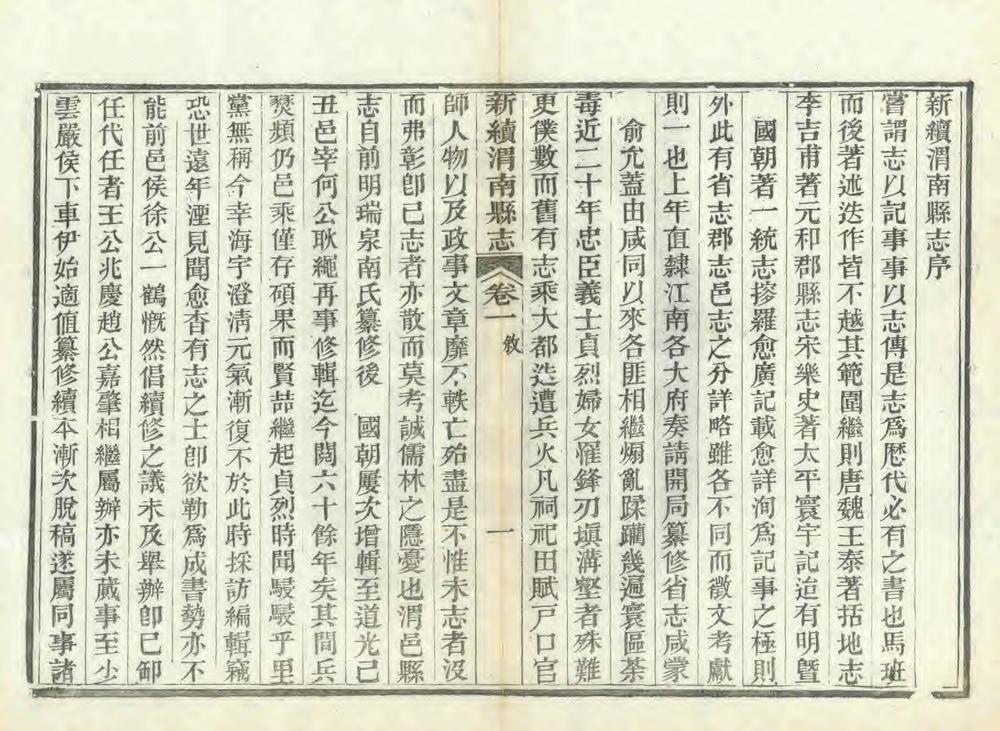 新續渭南縣志序
嘗謂志以記事事以志傳是志爲歷代必有之書也馬班
而後著述迭作皆不越其範圍繼則唐魏王泰著括地志
李吉甫著元和郡縣志宋樂史著太平寰宇記迨有明暨
國朝著一統志搜羅愈廣記載愈詳洵爲記事之極則
外此有省志郡志邑志之分詳略雖各不同而徵文考獻
則一也上年直隸江南各大府奏請開局纂修省志咸蒙
俞允蓋由咸同以來各匪相繼煽亂蹂躪幾遍寰區荼
毒近二十年忠臣義士貞烈婦女罹鋒刃塡溝壑者殊難
更僕數而舊有志乘大都迭遭兵火凡祠祀田賦戸口官
新續渭南縣志 卷一 敘 一
師人物以及政事文章靡不軼亡殆盡是不惟未志者沒
而弗彰卽已志者亦散而莫考誠儒林之隱憂也渭邑縣
志自前明瑞泉南氏纂修後 國朝屢次增輯至道光己
丑邑宰何公耿繩再事修輯迄今閱六十餘年矣其間兵
燹頻仍邑乘僅存碩果而賢喆繼起貞烈時聞駸駸乎里
黨無稱今幸海宇澄淸元氣漸復不於此時採訪編輯竊
恐世遠年湮見聞愈杳有志之士卽欲勒爲成書勢亦不
能前邑侯徐公一鶴慨然倡續修之議未及舉辦卽已卸
任代任者王公兆慶趙公嘉肇相繼屬辦亦未蕆事至少
雲嚴侯下車伊始適值纂修續本漸次脫稿遂屬同事諸